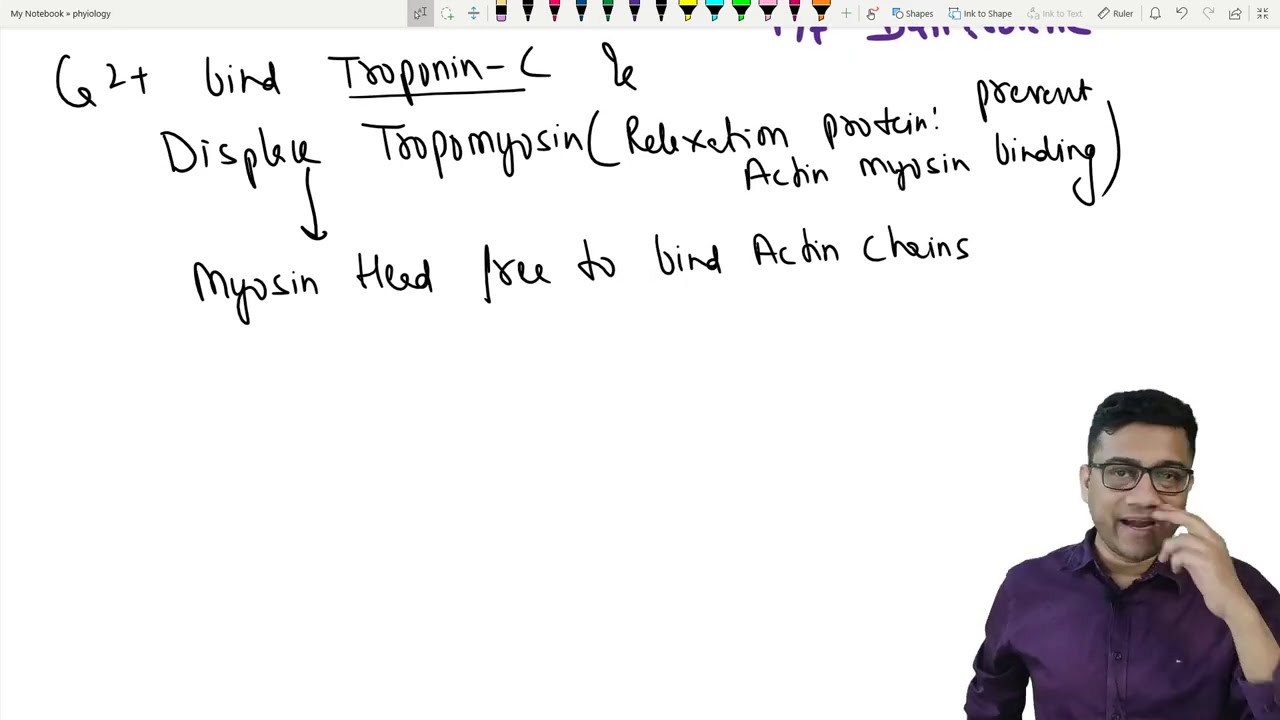 My Notebook » phyiology
Shapes
Ink to Shape
Ink to Text
Ruler
Ca2+ bind Troponin-C &
Displace Tropomyosin (Relaxation protein: prevent
Actin myosin binding)
Myosin Head free to bind Actin Chains